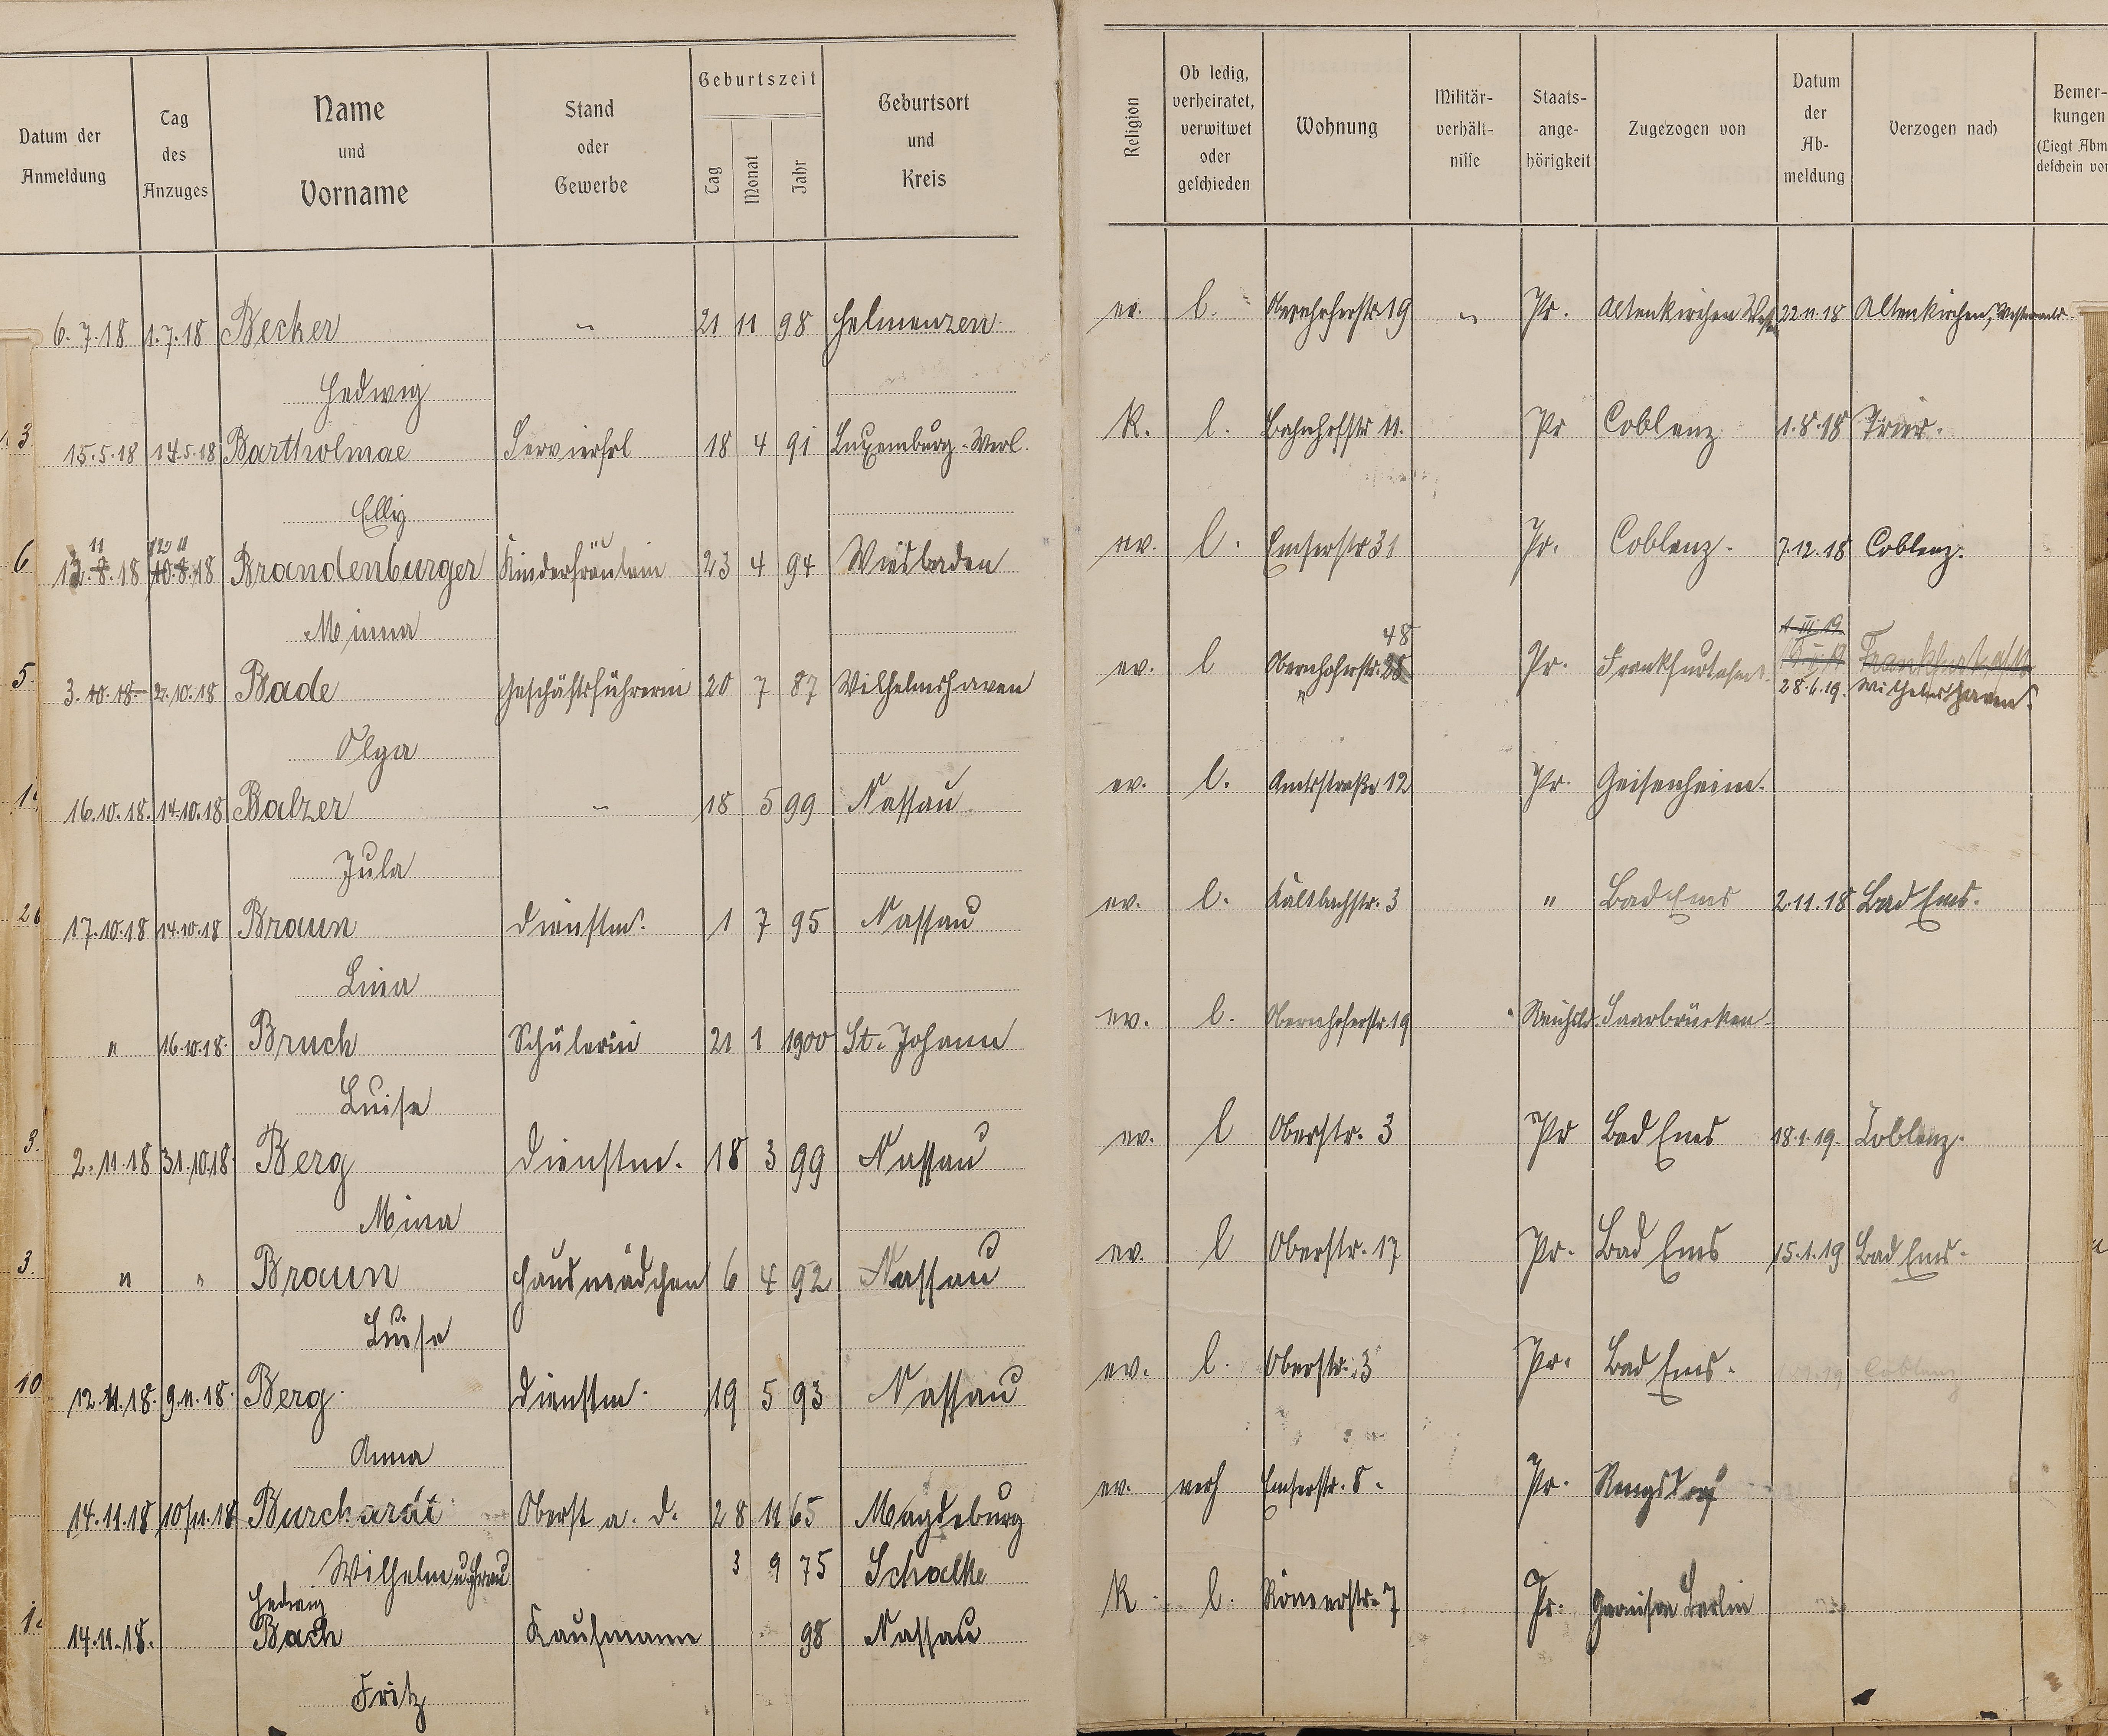 Datum der Anmeldung | Tag des Anzuges | Name und Vorname | Stand oder Gewerbe | Geburtszeit Tag Monat Jahr | Geburtsort und Kreis | Religion | Ob ledig, verheiratet, verwitwet oder geschieden | Wohnung | Militär-verhält-nisse | Staats-ange-hörigkeit | Zugezogen von | Datum der Ab-meldung | Verzogen nach | Bemer-kungen (Liegt Abm deschein vor
6.7.18 1.7.18 Becker " 21 11 98 Helmenzen ev. l. Obernhoferstr. 19 " Pr. Altenkirchen 22.11.18 Altenkirchen, Westerwald
Hedwig
3. 15.5.18 14.5.18 Bartholmae Servierfrl 18 4 91 Luxemburg-Merl. K. l. Bahnhofstr 11. Pr Coblenz 1.8.18 Trier.
Elly
11 12 11
6 8.18 10.8.18 Brandenburger Kinderfräulein 23 4 94 Wiesbaden ev. l. Emserstr 31 Pr. Coblenz. 7.12.18 Coblenz.
Minna
48 1.III.19.
5. 3.10.18 2.10.18 Bade Geschäftsführerin 20 7 87 Wilhelmshaven ev. l Obernhoferstr. Pr. Frankfurt Frankfurt
28.6.19. Wilhelmshaven.
Olga
16.10.18. 14.10.18 Balzer " 18 5 99 Nassau. ev. l. Amtsstraße 12 Pr. Geisenheim.
Jula
17.10.18 14.10.18 Braun Dienstm. 1 7 95 Nassau ev. l. Kaltbachstr. 3 " Bad Ems 2.11.18 Bad Ems.
Lina
" 16.10.18. Bruch Schülerin 21 1 1900 St. Johann ev. l. Obernhoferstr. 19 Saarbrücken.
Luise
3. 2.11.18 31.10.18. Berg Dienstm. 18 3 99 Nassau ev. l Oberstr. 3 Pr Bad Ems 18.1.19. Coblenz.
Mina
3. " " Braun Hausmädchen 6 4 92 Nassau ev. l Oberstr. 17 Pr. Bad Ems 15.1.19 Bad Ems.
Luise
10 12.11.18. 9.11.18. Berg. Dienstm. 19 5 93 Nassau ev. l. Oberstr. 3 Pr. Bad Ems. Coblenz
Anna
14.11.18 10/11.18 Burchardt Oberst a. D. 28 11 65 Magdeburg ev. verh Emserstr. 8. Pr. Rengsdorf
Wilhelm u. Frau 3 9 75 Schalke
Hedwig
14.11.18. Bach Kaufmann 98 Nassau K l. Römerstr. 7 Pr. Garnison Berlin
Fritz